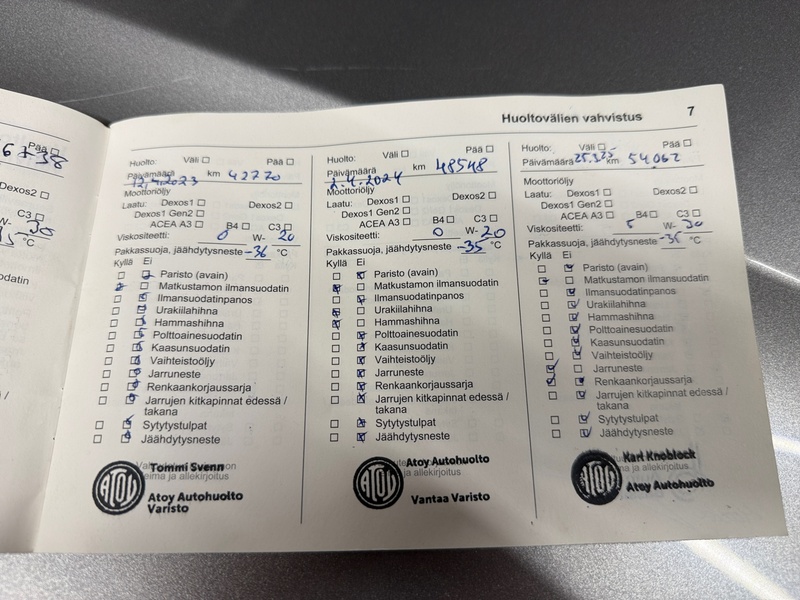 Huoltovälien vahvistus 7
Pää
6 738
Dexos2
C3
W- 30
°C
odatin
Huolto: Väli Pää
Päivämäärä km 42770
12.4.2023
Moottoriöljy
Laatu: Dexos1 Dexos2
Dexos1 Gen2
ACEA A3 B4 C3
Viskositeetti: 0 W- 20
Pakkassuoja, jäähdytysneste -36 °C
Kyllä Ei
Paristo (avain)
Matkustamon ilmansuodatin
Ilmansuodatinpanos
Urakiilahihna
Hammashihna
Polttoainesuodatin
Kaasunsuodatin
Vaihteistoöljy
Jarruneste
Renkaankorjaussarja
Jarrujen kitkapinnat edessä /
takana
Sytytystulpat
Jäähdytysneste
Tommi Svenn
eima ja allekirjoitus
ATOY
Atoy Autohuolto
Varisto
Huolto: Väli Pää
Päivämäärä km 48548
2.4.2024
Moottoriöljy
Laatu: Dexos1 Dexos2
Dexos1 Gen2
ACEA A3 B4 C3
Viskositeetti: 0 W- 20
Pakkassuoja, jäähdytysneste -35 °C
Kyllä Ei
Paristo (avain)
Matkustamon ilmansuodatin
Ilmansuodatinpanos
Urakiilahihna
Hammashihna
Polttoainesuodatin
Kaasunsuodatin
Vaihteistoöljy
Jarruneste
Renkaankorjaussarja
Jarrujen kitkapinnat edessä /
takana
Sytytystulpat
Jäähdytysneste
Atoy Autohuolto
ja allekirjoitus
ATOY
Vantaa Varisto
Huolto: Väli Pää
Päivämäärä 25.3.25 km 54062
Moottoriöljy
Laatu: Dexos1 Dexos2
Dexos1 Gen2
ACEA A3 B4 C3
Viskositeetti: 5 W- 30
Pakkassuoja, jäähdytysneste -35 °C
Kyllä Ei
Paristo (avain)
Matkustamon ilmansuodatin
Ilmansuodatinpanos
Urakiilahihna
Hammashihna
Polttoainesuodatin
Kaasunsuodatin
Vaihteistoöljy
Jarruneste
Renkaankorjaussarja
Jarrujen kitkapinnat edessä /
takana
Sytytystulpat
Jäähdytysneste
Kari Knoblock
ja allekirjoitus
ATOY
Atoy Autohuolto